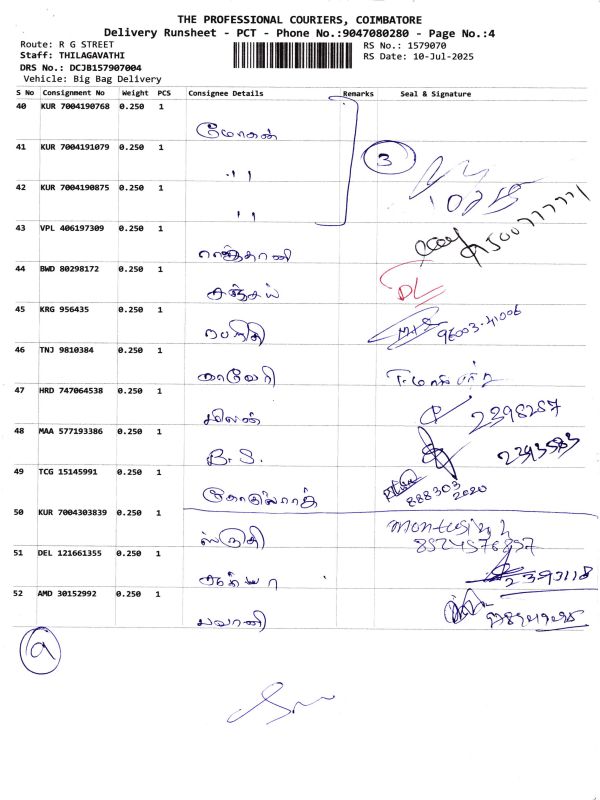 THE PROFESSIONAL COURIERS, COIMBATORE
Delivery Runsheet - PCT - Phone No.:9047080280 - Page No.:4
Route: R G STREET
RS No.: 1579070
Staff: THILAGAVATHI
RS Date: 10-Jul-2025
DRS No.: DCJB157907004
Vehicle: Big Bag Delivery
S No Consignment No Weight PCS Consignee Details Remarks Seal & Signature
40 KUR 7004190768 0.250 1 மோகன்
41 KUR 7004191079 0.250 1 ,, 3
42 KUR 7004190875 0.250 1 ,,
43 VPL 406197309 0.250 1
44 BWD 80298172 0.250 1 சஞ்சய் DL
45 KRG 956435 0.250 1 96003-41006
46 TNJ 9810384 0.250 1 காவேரி
47 HRD 747064538 0.250 1 மிலன் 2398257
48 MAA 577193386 0.250 1 B.S. 2393583
49 TCG 15145991 0.250 1 888303 2020
50 KUR 7004303839 0.250 1 ஸ்ருதி
51 DEL 121661355 0.250 1
52 AMD 30152992 0.250 1 பவானி
9